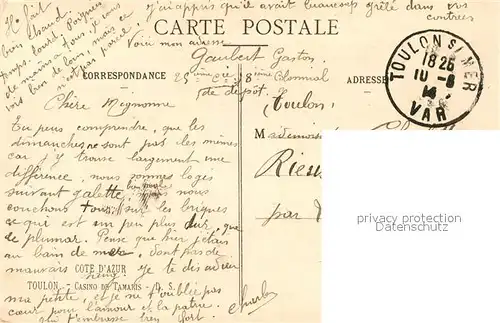 J'ai appris qu'il avait beaucoup grêlé dans vos
contrées
Il fait
bien chaud
temps lourd. Poignées
de mains à tous, je vous
dis bien de loin, mais ce
n'est pas pareil
CARTE POSTALE
Voici mon adresse
Goubert Gaston
CORRESPONDANCE
25ème Cie, 8ième Colonial
ADRESSE
de dépôt
(Toulon)
TOULON S/ MER
1825
10-6
14
VAR
Chère Mignonne
Mademoiselle
Tu peux comprendre, que les
dimanches ne sont pas les mêmes
car j'y trouve largement une
différence, nous sommes logés
suivant galette nous
couchons tous sur les briques
ce qui est un peu plus dur, que
le plumar. Pense que hier j'étais
au bain de mer, dont pas de
mauvais
par
privacy protection
Ak-Ansichtskarten.de
COTE D'AZUR
je te dis adieu
TOULON. - CASINO DE TAMARIS - D. S.
ma petite, et je ne t'oublie pas
cœur pour l'amour et la patrie
t'embrasse bien fort.